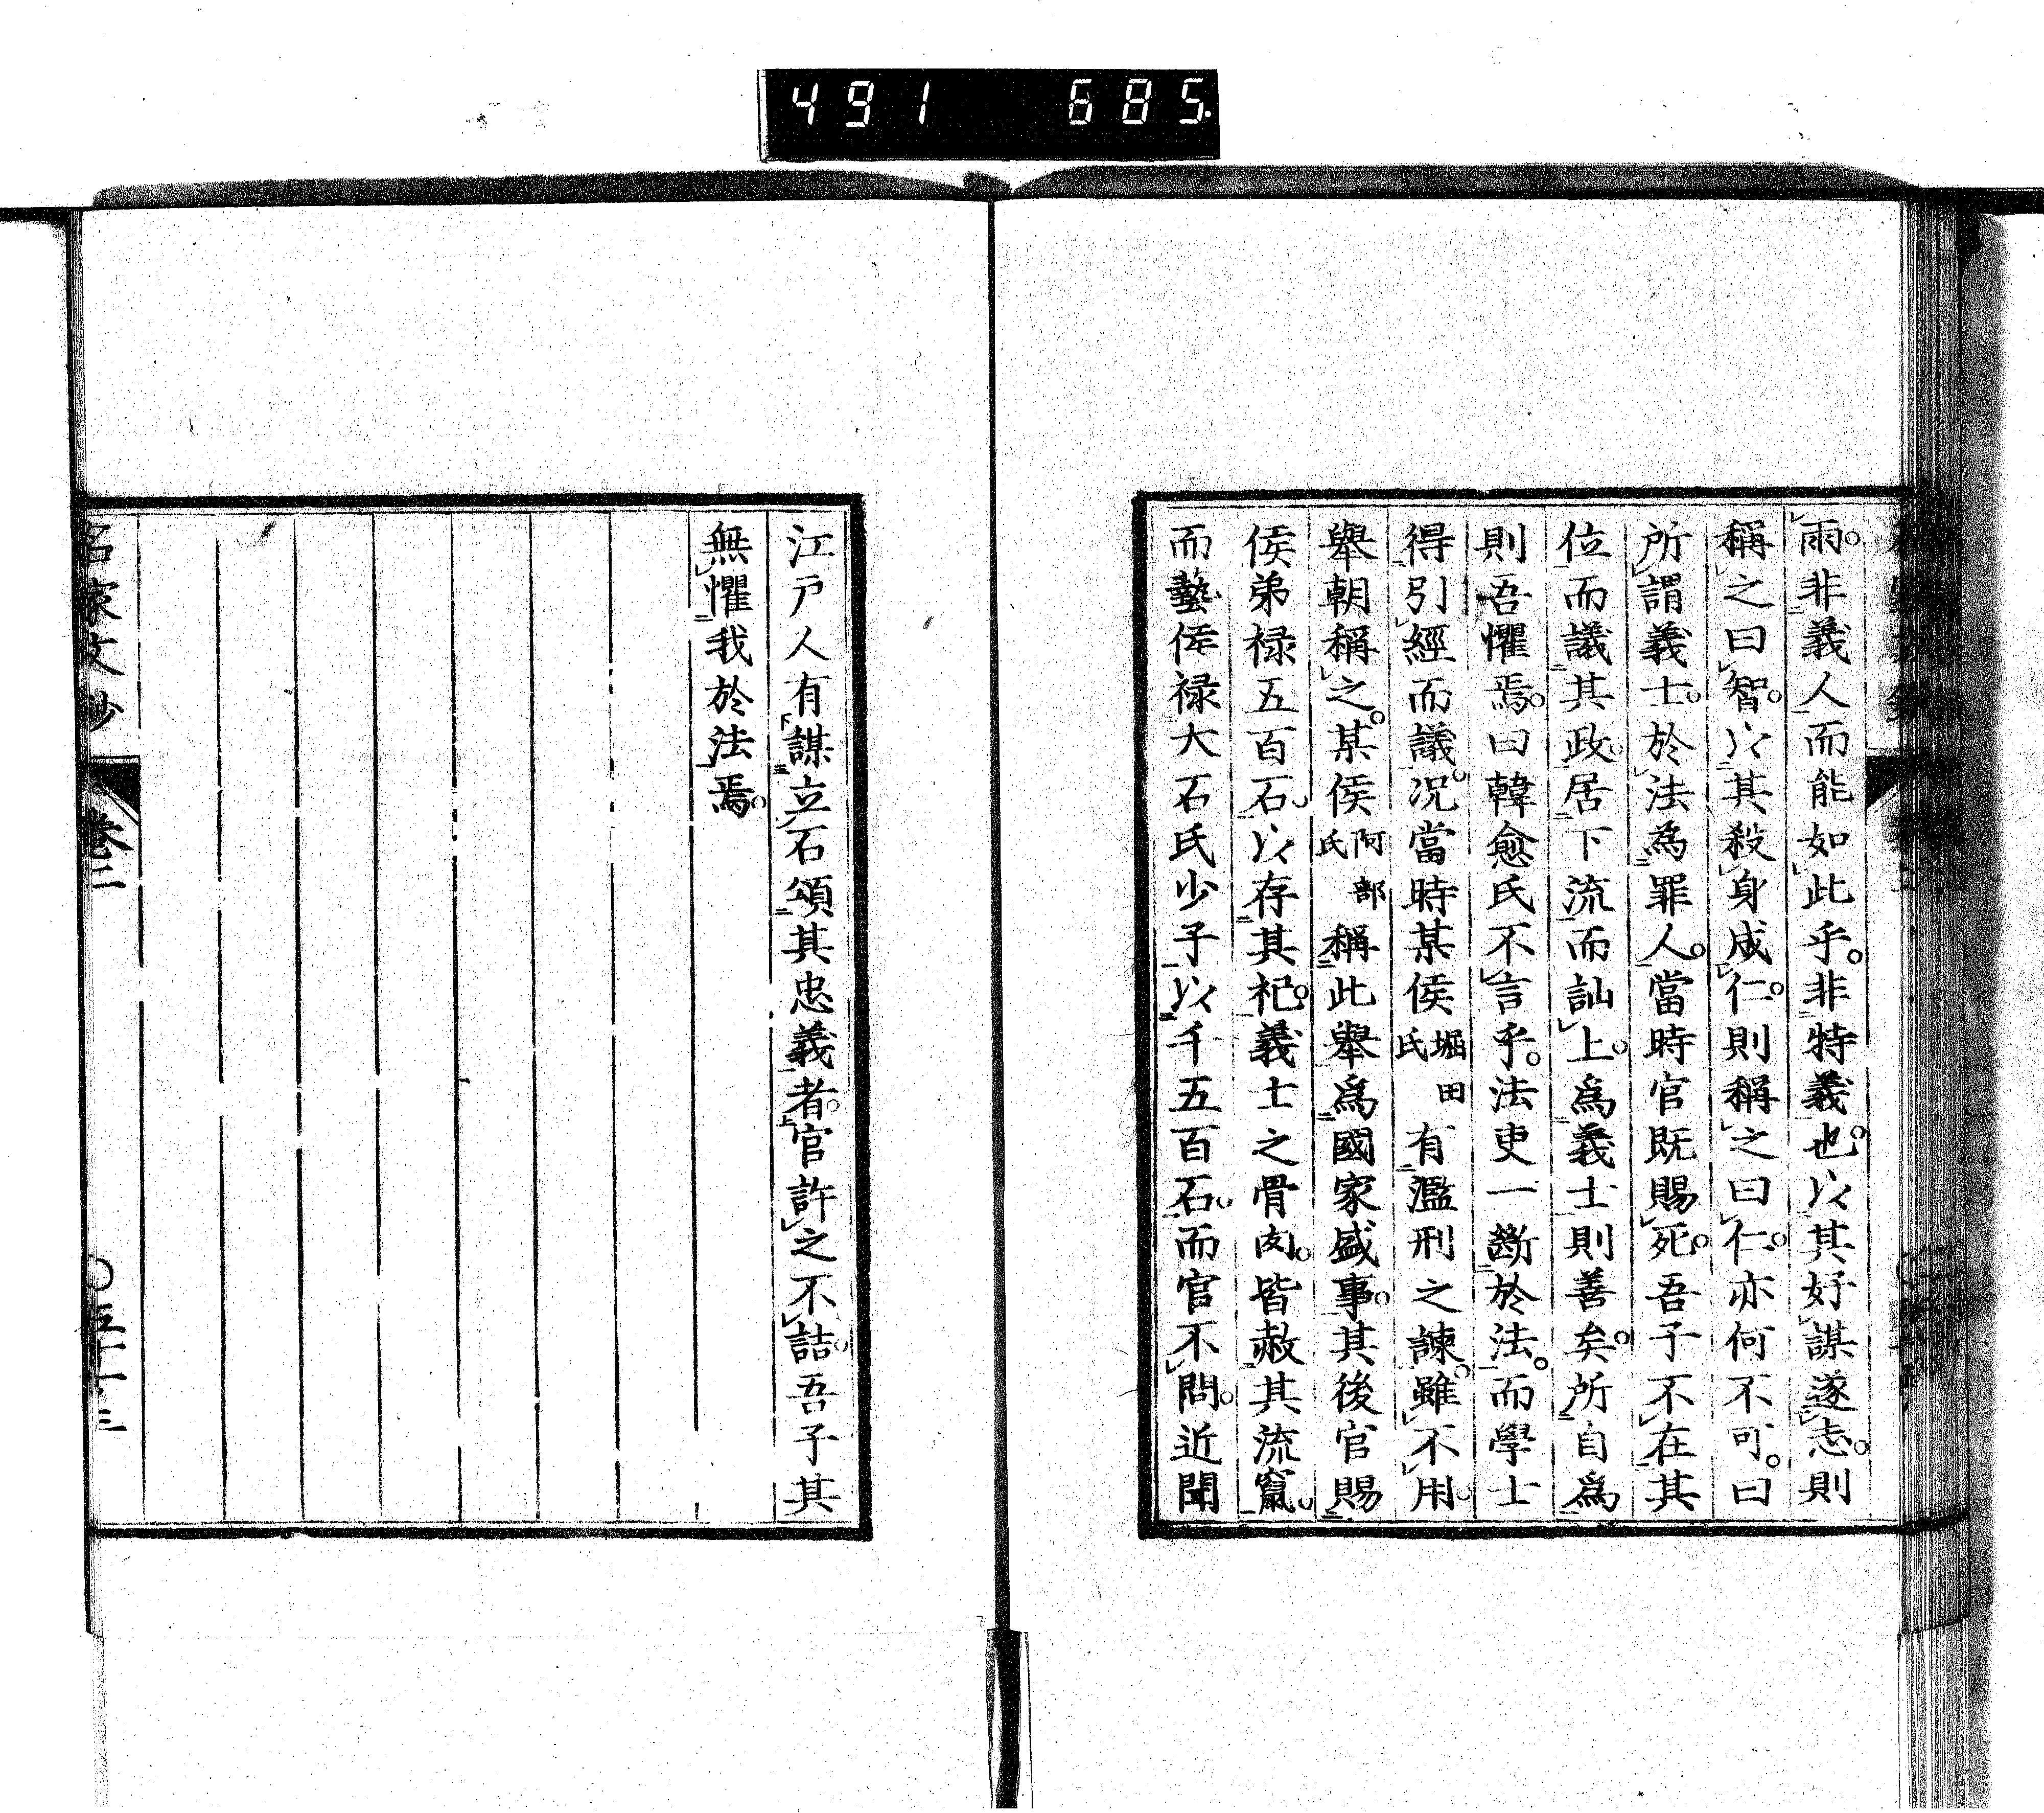 491 685.
雨。非義人而能如此乎。非特義也。以其好謀遂志。則
稱之曰智。以其殺身成仁。則稱之曰仁。亦何不可。曰
所謂義士。於法為罪人。當時官既賜死。吾子不在其
位而議其政。居下流而訕上。為義士則善矣。所自為
則吾懼焉。曰韓愈氏不言乎。法吏一斷於法。而學士
得引經而議。况當時某侯堀田氏有濫刑之諫。雖不用。
舉朝稱之。某侯阿部氏稱此舉為國家盛事。其後官賜
侯弟祿五百石。以存其祀。義士之骨肉。皆赦其流竄。
而藝侯祿大石氏少子以千五百石。而官不問。近聞
江戶人有謀立石頌其忠義者。官許之不詰。吾子其
無懼我於法焉。
名家文抄 卷二 〇五十三